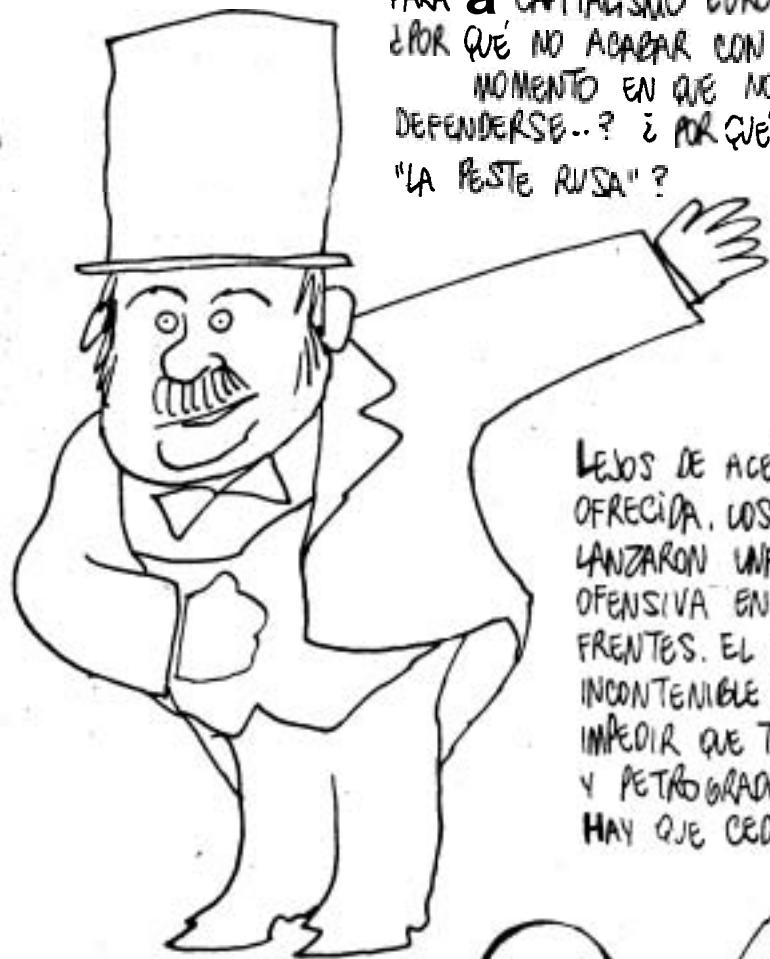 PARA EL CAPITALISMO EURO
¿POR QUÉ NO ACABAR CON
MOMENTO EN QUE NO
DEFENDERSE..? ¿ POR QUÉ
"LA PESTE RUSA"?
LEJOS DE ACE
OFRECIDA, LOS
LANZARON UNA
OFENSIVA EN
FRENTES. EL
INCONTENIBLE
IMPEDIR QUE T
Y PETROGRAD
HAY QUE CED